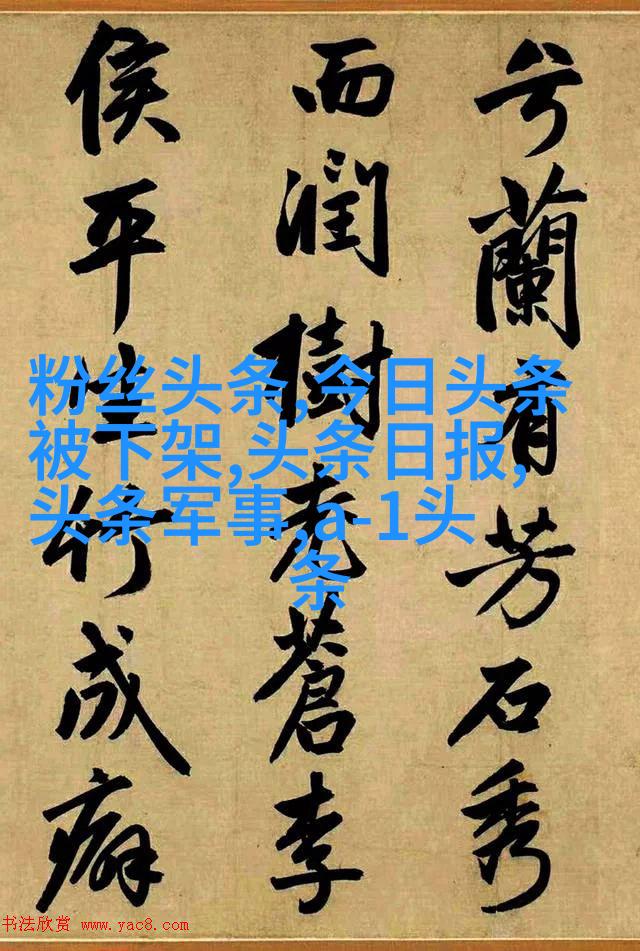 兮蘭有芳石秀
而潤樹老蒼李
侯平生竹成癖
粉丝头条,今日头条
被下架,头条日报,
头条军事,a-1头
条
书法欣赏 www.yac8.com